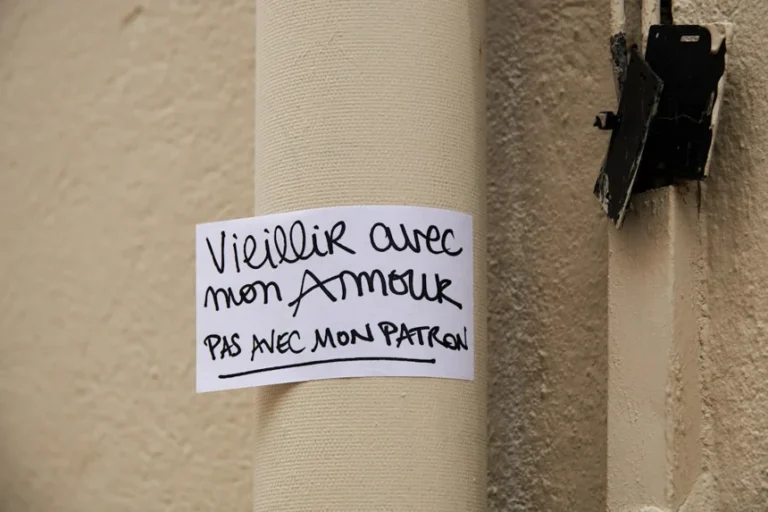 Vieillir avec
mon Amour
PAS AVEC MON PATRON